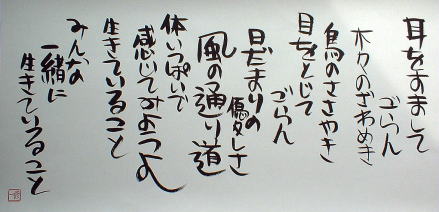 耳をすまして
ごらん
木々のざわめき
鳥のささやき
目をとじて
ごらん
日だまりの
優しさ
風の通り道
体いっぱいで
感じてみようよ
生きていること
みんなの
一緒に
生きていること